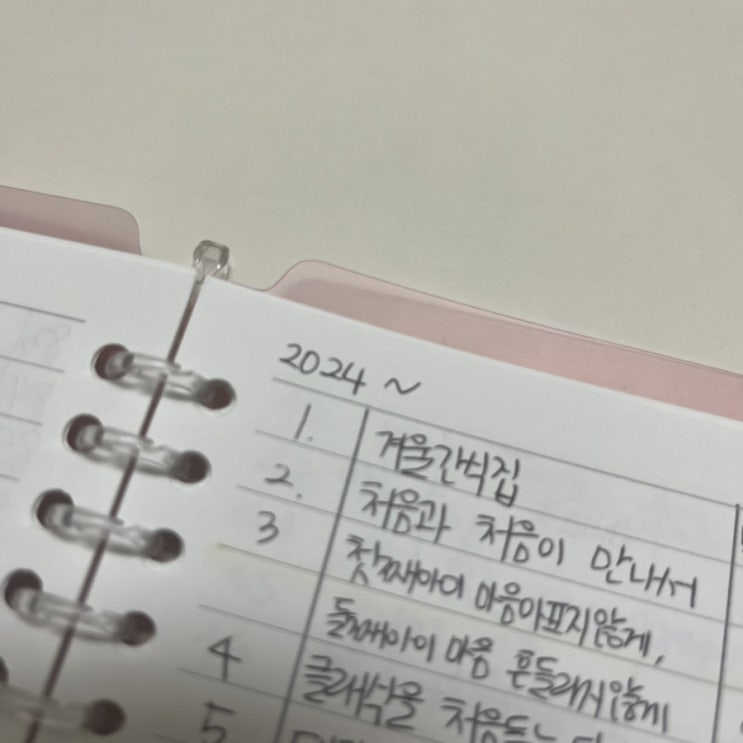 2024 ~
1. 겨울간식집
2. 처음과 처음이 만나서
3 첫째아이 마음아프지않게,
둘째아이 마음 흔들리지않게
4 클래식을 처음듣는
5